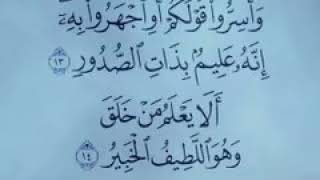 وَأَسِرُّوا۟ قَوْلَكُمْ أَوِ ٱجْهَرُوا۟ بِهِۦٓ
إِنَّهُۥ عَلِيمٌۢ بِذَاتِ ٱلصُّدُورِ ١٣
أَلَا يَعْلَمُ مَنْ خَلَقَ
وَهُوَ ٱللَّطِيفُ ٱلْخَبِيرُ ١٤